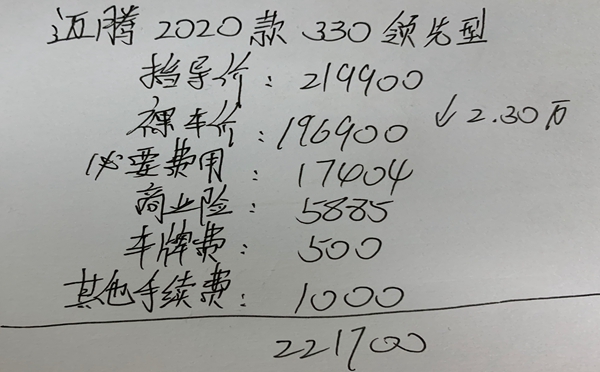 迈腾 2020款 330 领先型
指导价：219900
裸车价：196900 ↓2.30万
必要费用：17404
商业险：5885
车牌费：500
其他手续费：1000
221700